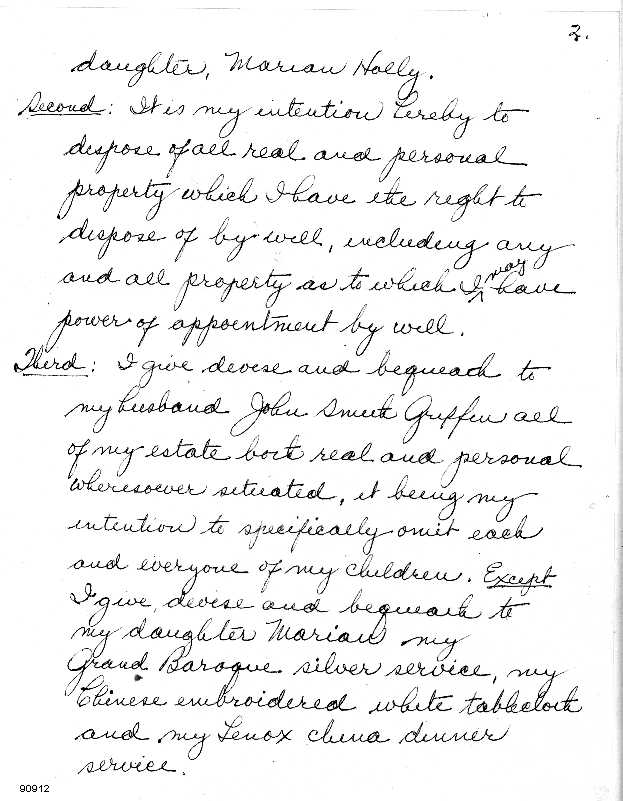 2.
daughter, Marian Holly.
Second: It is my intention hereby to
dispose of all real and personal
property which I have the right to
dispose of by will, including any
and all property as to which I may have
power of appointment by will.
Third: I give devise and bequeath to
my husband John Smith Griffin all
of my estate both real and personal
wheresoever situated, it being my
intention to specifically omit each
and everyone of my children. Except
I give, devise and bequeath to
my daughter Marian my
Grand Baroque silver service, my
Chinese embroidered white tablecloth
and my Lenox china dinner
service.
90912